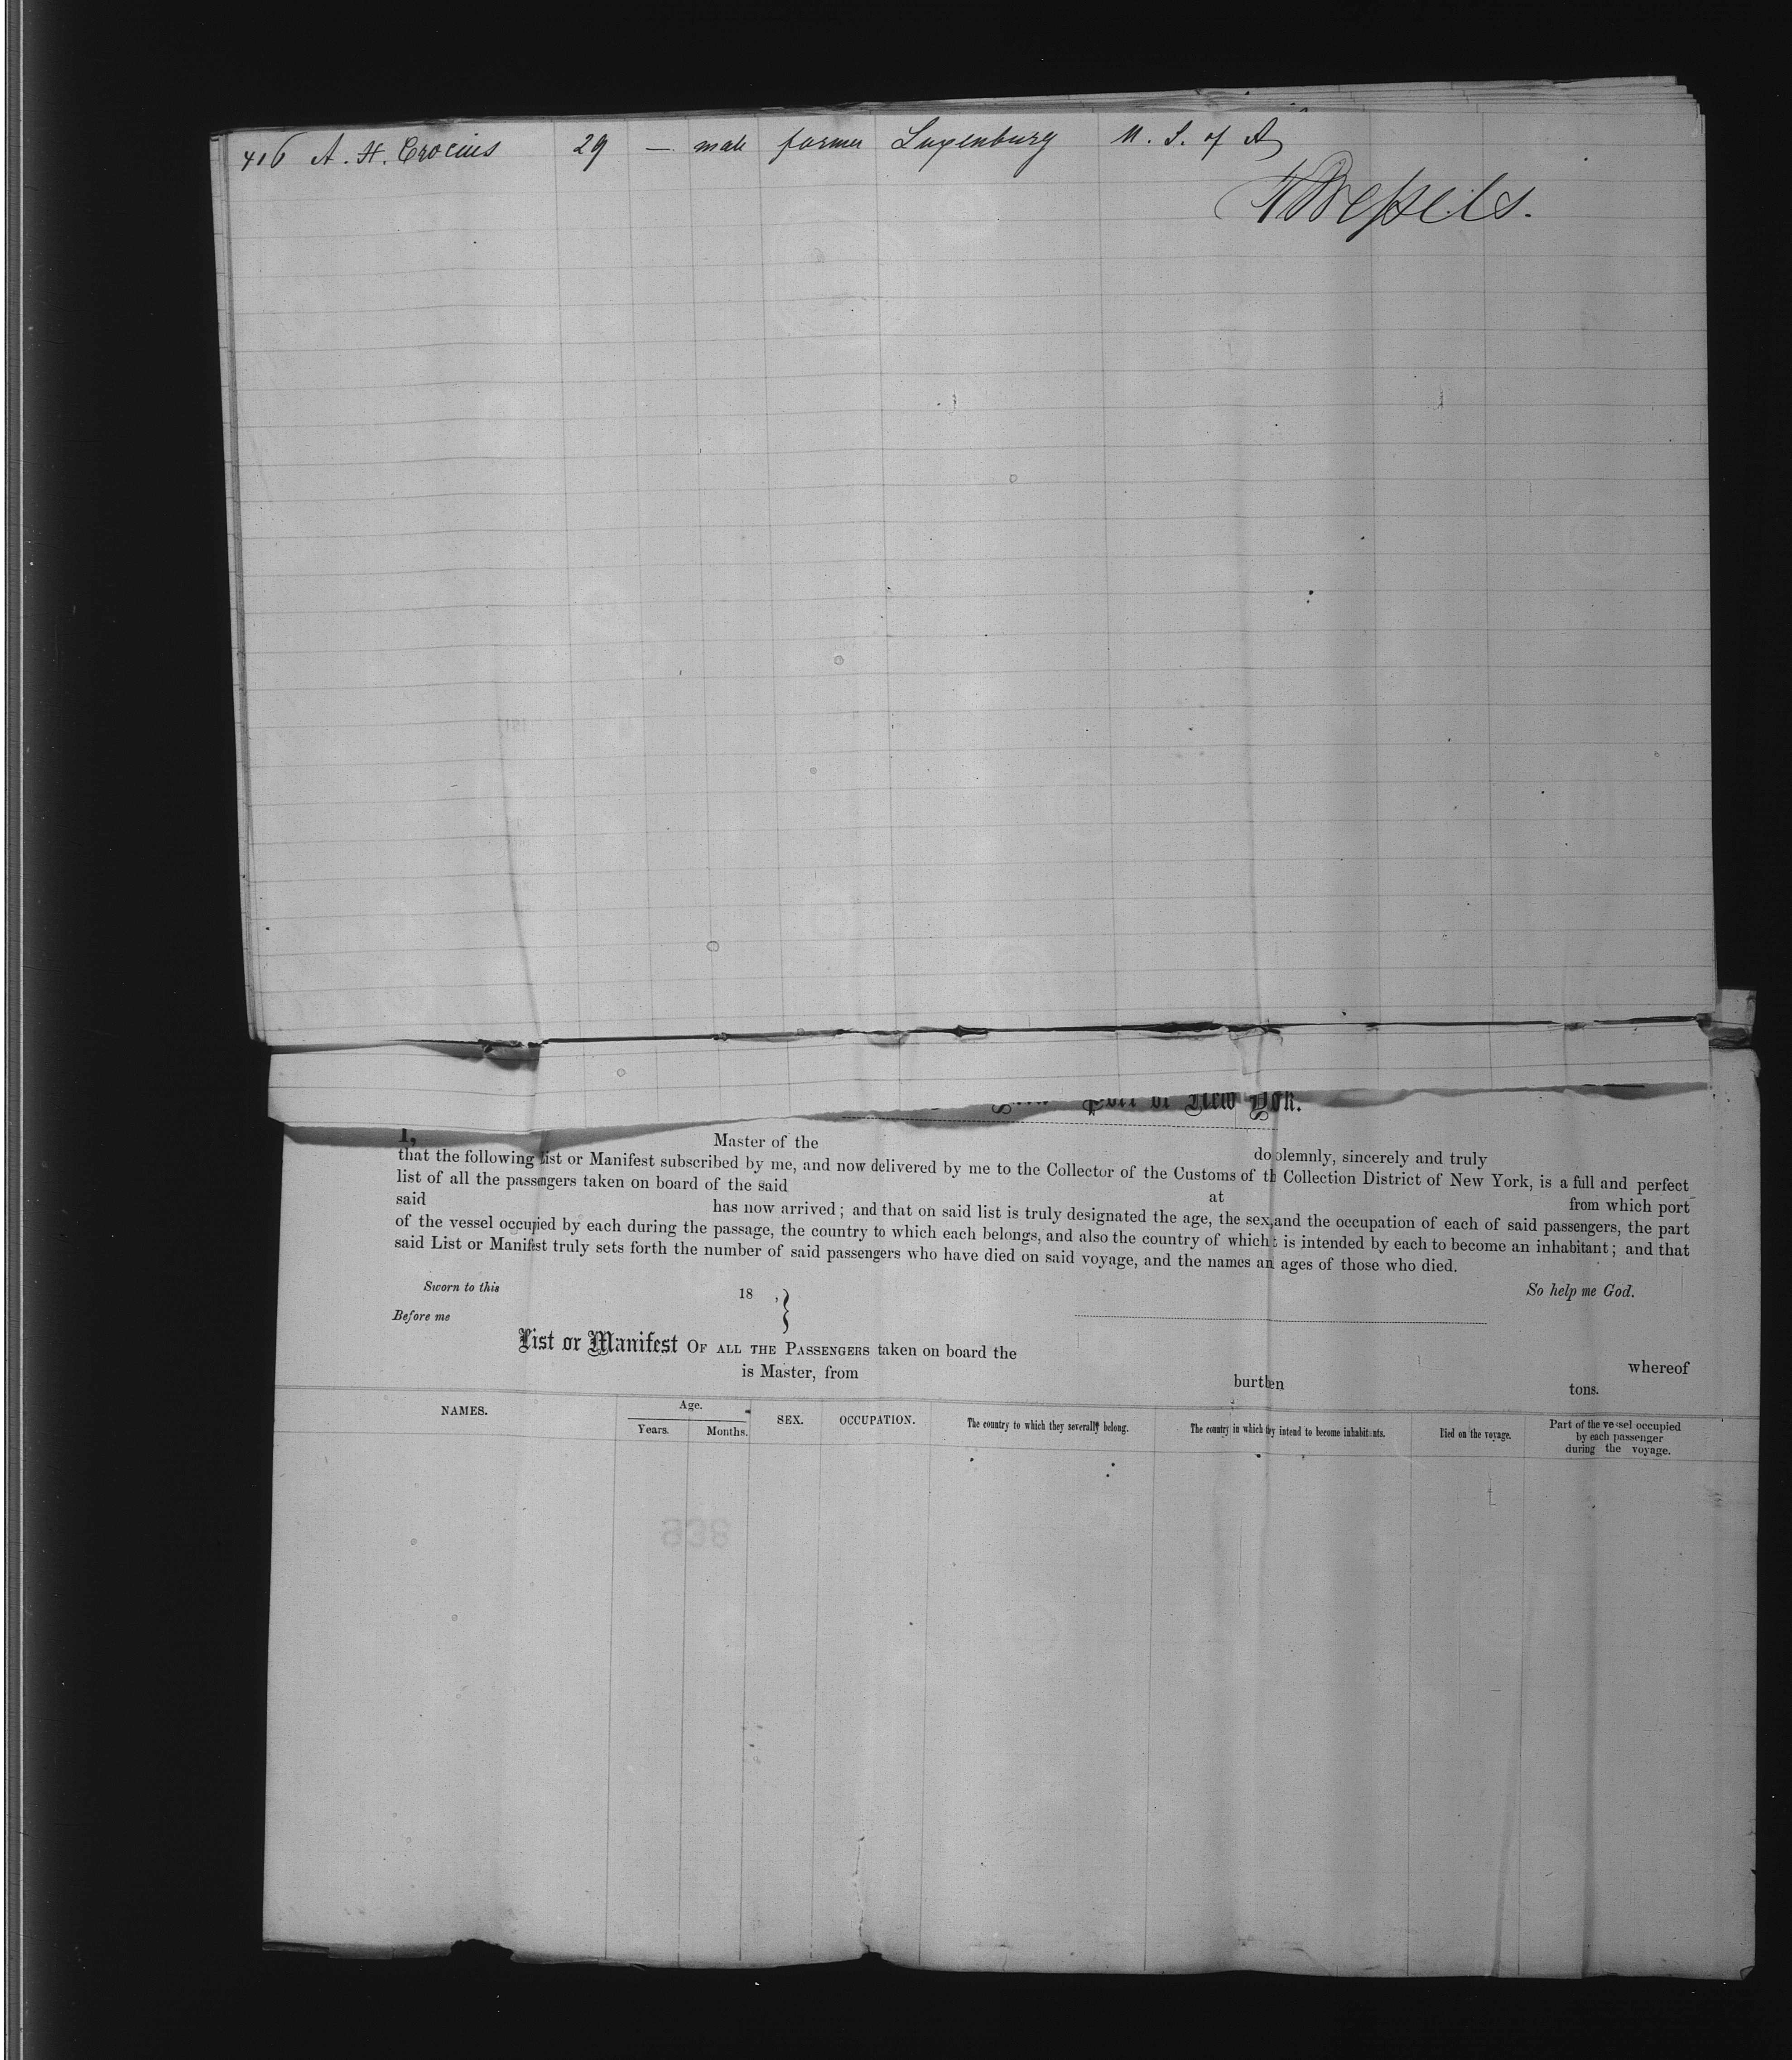 416 A. H. Crocius 29 — male farmer Luxenburg U. S. of A
Wessels.
Port of New York.
I, Master of the do olemnly, sincerely and truly
that the following list or Manifest subscribed by me, and now delivered by me to the Collector of the Customs of th Collection District of New York, is a full and perfect
list of all the passengers taken on board of the said at from which port
said has now arrived; and that on said list is truly designated the age, the sex, and the occupation of each of said passengers, the part
of the vessel occupied by each during the passage, the country to which each belongs, and also the country of which it is intended by each to become an inhabitant; and that
said List or Manifest truly sets forth the number of said passengers who have died on said voyage, and the names an ages of those who died.
Sworn to this 18 , So help me God.
Before me
List or Manifest OF ALL THE PASSENGERS taken on board the whereof
is Master, from burthen tons.
NAMES. Age. SEX. OCCUPATION. The country to which they severally belong. The country in which they intend to become inhabitants. Died on the voyage. Part of the vessel occupied by each passenger during the voyage.
Years. Months.